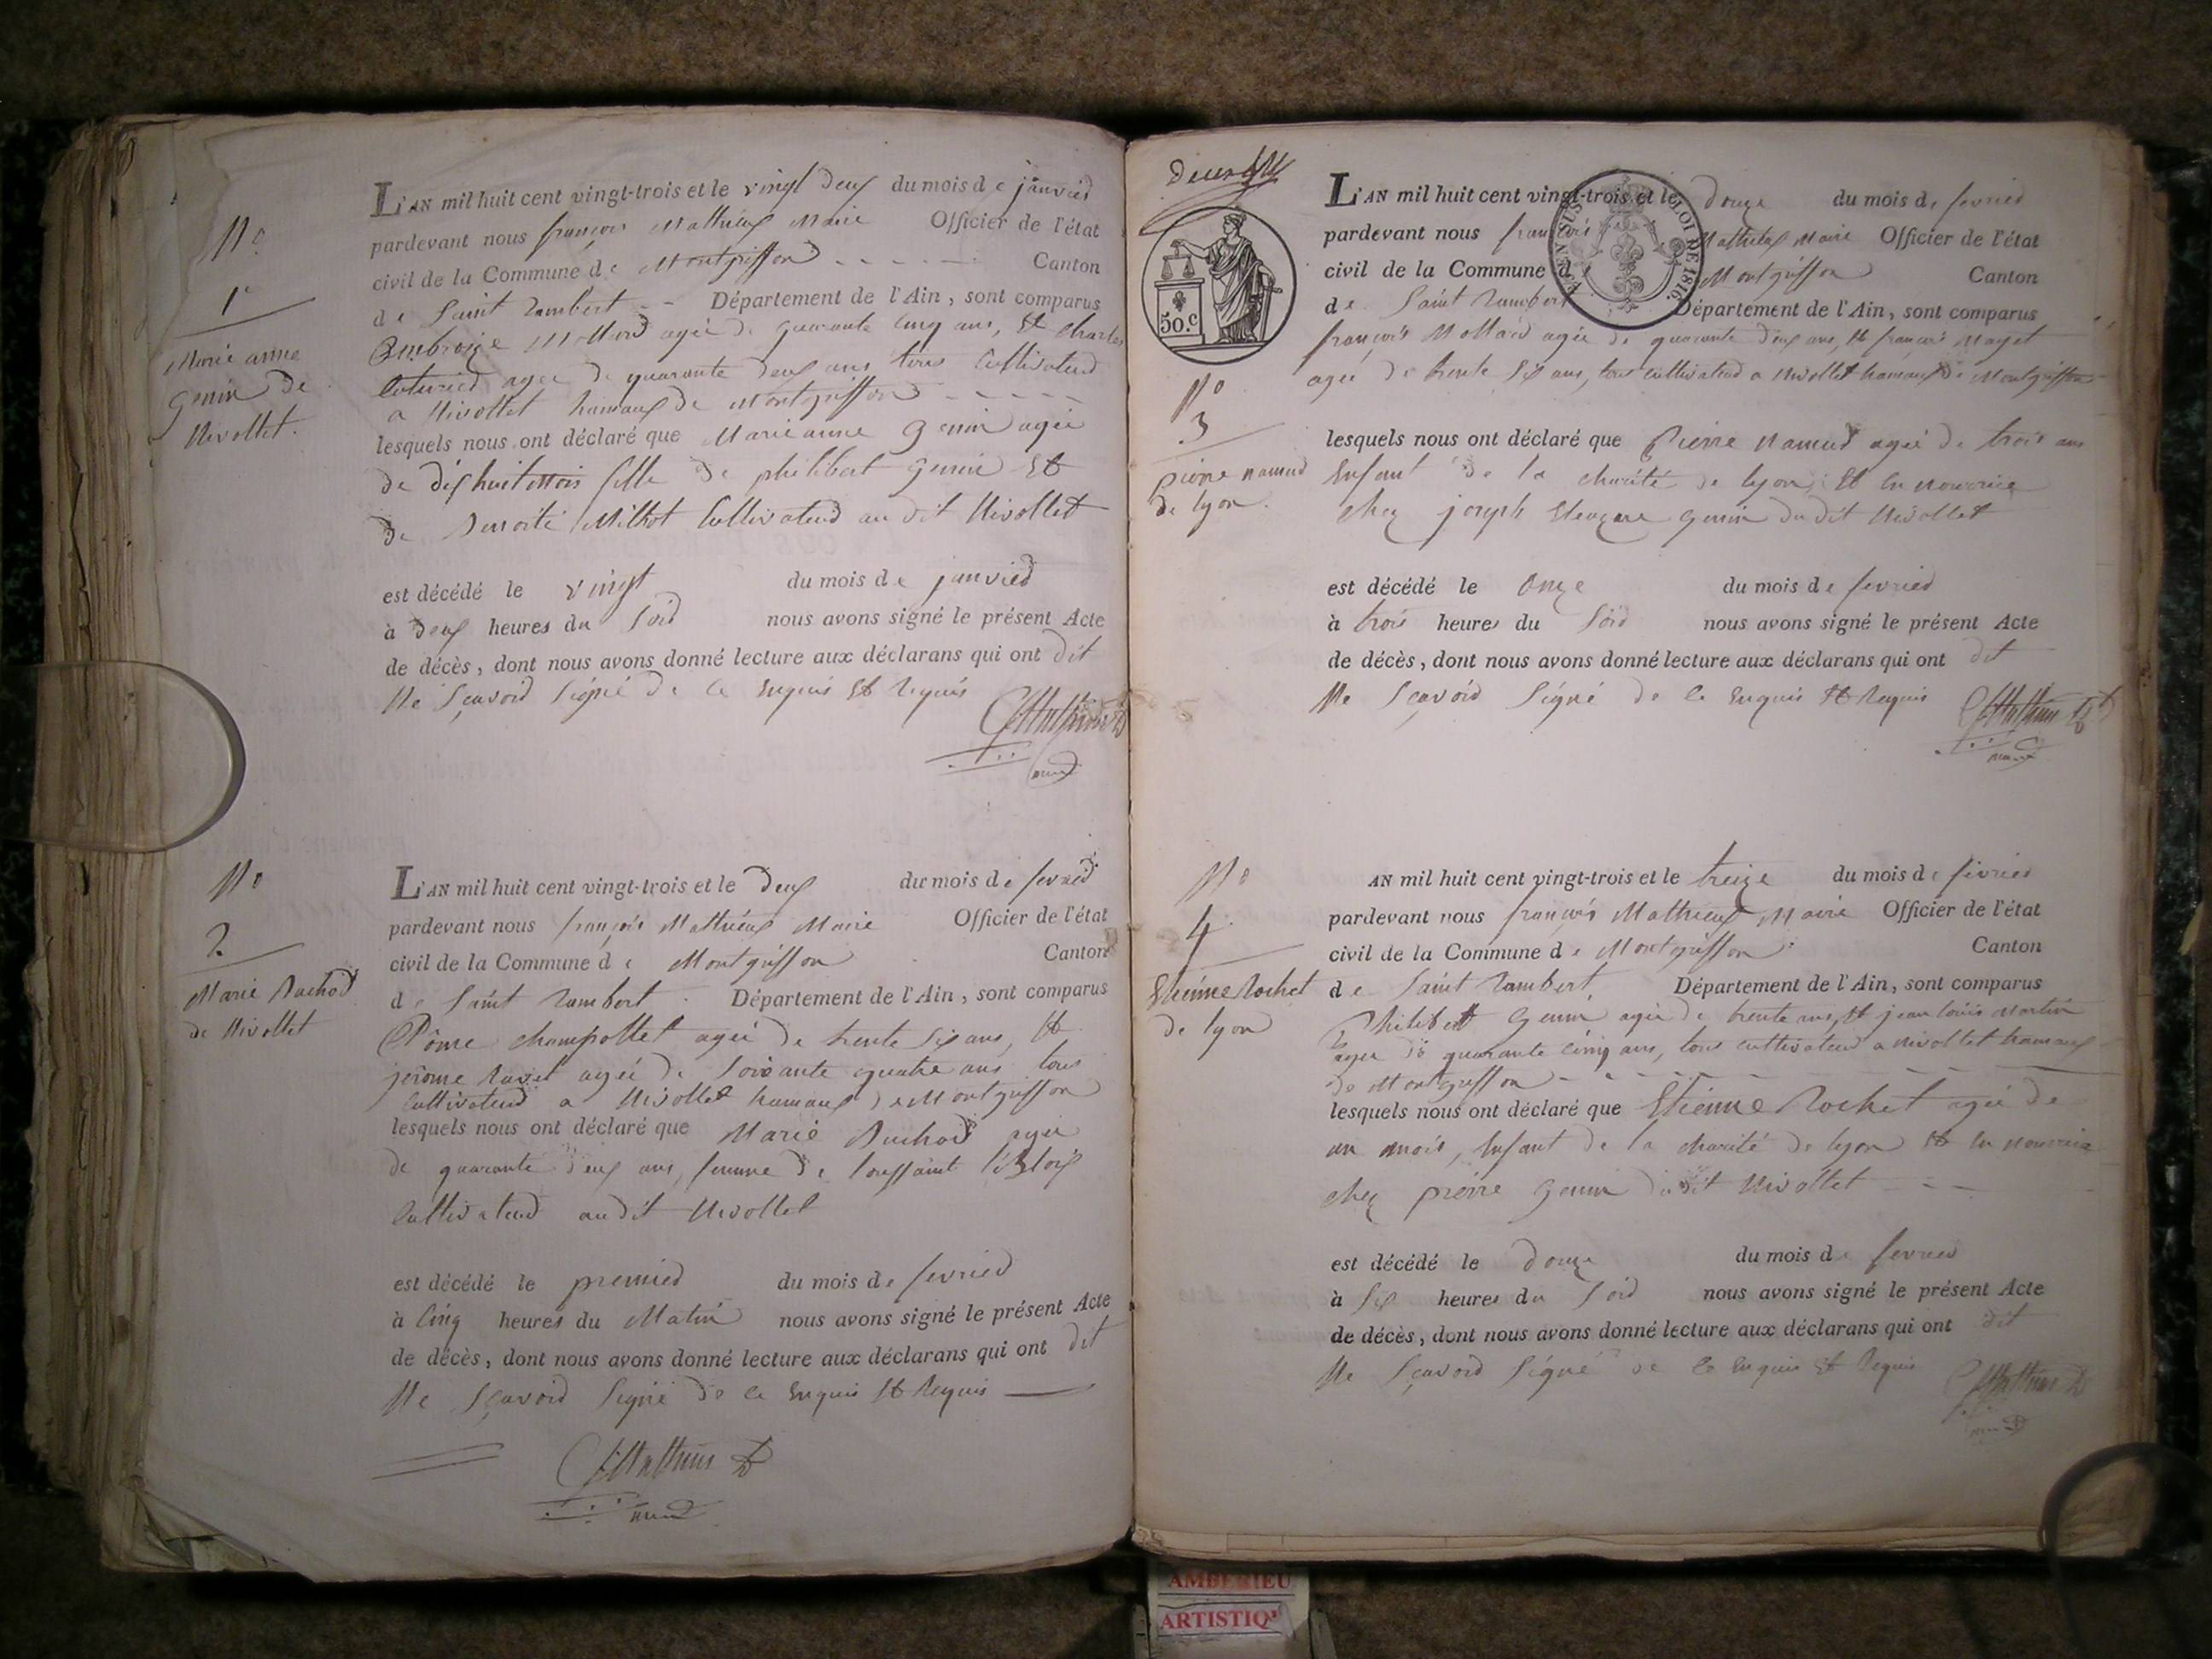 N.o
1.
Marie anne
Genin de
Nivollet.
L'AN mil huit cent vingt-trois et le vingt deux du mois de janvier
pardevant nous françois Mathieux Maire Officier de l'état
civil de la Commune de Montgriffon Canton
de Saint Rambert Département de l'Ain, sont comparus
Ambroize Mollard agée de quarante cinq ans, Et Charles
agée de quarante deux ans tous Cultivateur
a Nivollet hamaux de Montgriffon
lesquels nous ont déclaré que Marie anne Genin agée
de dixhuit mois fille de philibert Genin Et
de Benoite Milliot Cultivateur au dit Nivollet
est décédé le vingt du mois de janvier
à deux heures du Soir nous avons signé le présent Acte
de décès, dont nous avons donné lecture aux déclarans qui ont dit
Ne Sçavoir Signé de ce Enquis Et Requis
N.o
2.
Marie Buchod
de Nivollet
L'AN mil huit cent vingt-trois et le Deux du mois de fevrier
pardevant nous françois Mathieux Maire Officier de l'état
civil de la Commune de Montgriffon Canton
de Saint Rambert Département de l'Ain, sont comparus
Côme Champollet agée de trente Six ans, Et
jerome Ravet agée de Soixante quatre ans tous
Cultivateur a Nivollet hamaux de Montgriffon
lesquels nous ont déclaré que Marie Buchod agée
de quarante deux ans, femme de toussaint
Cultivateur audit Nivollet
est décédé le premier du mois de fevrier
à Cinq heures du Matin nous avons signé le présent Acte
de décès, dont nous avons donné lecture aux déclarans qui ont dit
Ne Sçavoir Signé de ce Enquis Et Requis
Mathieux
50.c
LOI DE 1816.
N.o
3
pierre namud
de lyon.
L'AN mil huit cent vingt-trois et le Douze du mois de fevrier
pardevant nous françois Mathieux Maire Officier de l'état
civil de la Commune de Montgriffon Canton
de Saint Rambert Département de l'Ain, sont comparus
françois Mollard agée de quarante deux ans, Et françois Mayet
agée de trente Six ans, tous cultivateur a Nivollet hamaux de Montgriffon
lesquels nous ont déclaré que Pierre namud agée de trois ans
Enfant de la charité de lyon, Et En nourrice
chez joseph Eleazare Genin du dit Nivollet
est décédé le Onze du mois de fevrier
à trois heures du Soir nous avons signé le présent Acte
de décès, dont nous avons donné lecture aux déclarans qui ont dit
Ne Sçavoir Signé de ce Enquis Et Requis
N.o
4.
Etienne Rochet
de lyon
AN mil huit cent vingt-trois et le treize du mois de fevrier
pardevant nous françois Mathieux Maire Officier de l'état
civil de la Commune de Montgriffon Canton
de Saint Rambert Département de l'Ain, sont comparus
Philibert Genin agée de trente ans, Et jean louis Martin
agée de quarante cinq ans, tous cultivateur a Nivollet hamaux
de Montgriffon
lesquels nous ont déclaré que Etienne Rochet agée de
un mois, Enfant de la charité de lyon Et En nourrice
chez pierre Genin du dit Nivollet
est décédé le Douze du mois de fevrier
à Six heures du Soir nous avons signé le présent Acte
de décès, dont nous avons donné lecture aux déclarans qui ont dit
Ne Sçavoir Signé de ce Enquis Et Requis
AMBERIEU
ARTISTIQ